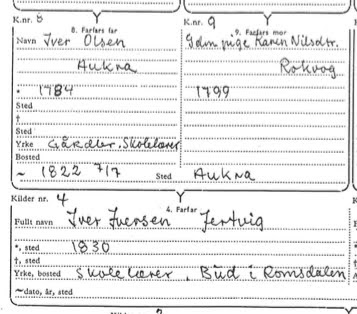 K.nr. 8 K.nr. 9
8. Farfars far 9. Farfars mor
Navn Iver Olsen Gdm pige Karen Nilsdtr.
Aukra Rokvog
* 1784 1799
Sted
†
Sted
Yrke Gårdbr. Skolelærer
Bosted
~ 1822 7/7 Sted Aukra
Kilder nr. 4
4. Farfar
Fullt navn Iver Iversen Jertvig
*, sted 1830
†, sted
Yrke, bosted Skolelærer, Bud i Romsdalen
~dato, år, sted